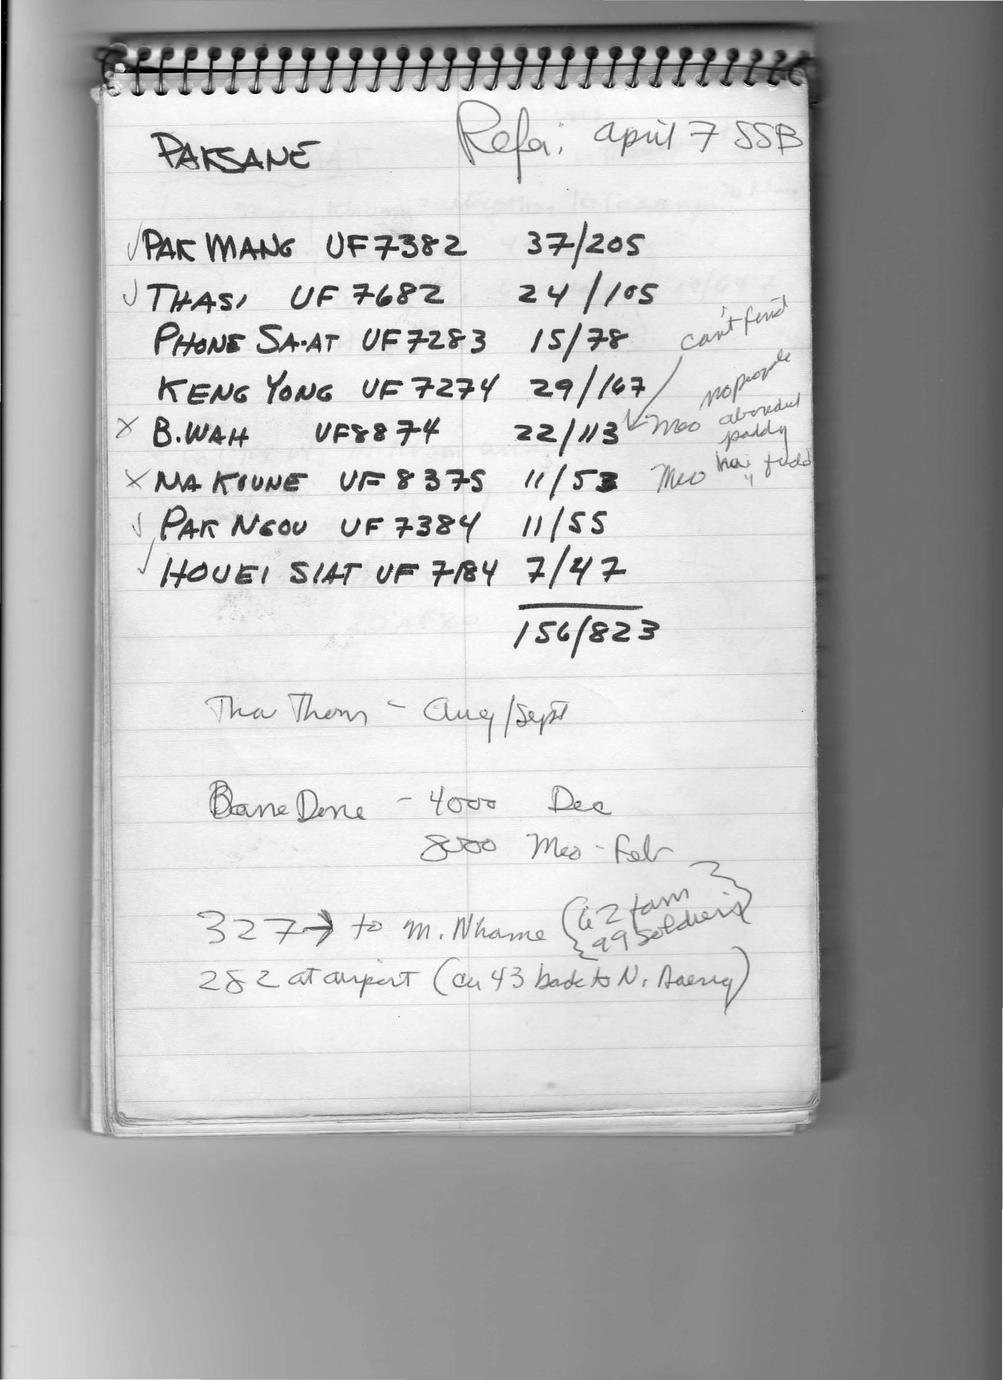 PAKSANE
Refa: april 7 SSB
✓ PAK MANG UF 7382 37/205
✓ THASI UF 7682 24/105
PHONE SA-AT UF 7283 15/78
can't find
KENG YONG UF 7274 29/167
no people
X B.WAH UF8874 22/113 Meo
paddy
X NA KOUNE UF 8375 11/53 Meo
✓ PAK NGOU UF 7384 11/55
✓ HOUEI SIAT UF 7184 7/47
156/823
Tha Thom - Aug/Sept
Bane Done - 4000 Dec
8000 Meo - Feb
327 → to M. Nhame (62 fam
99 soldiers)
282 at airport (43 back to N.